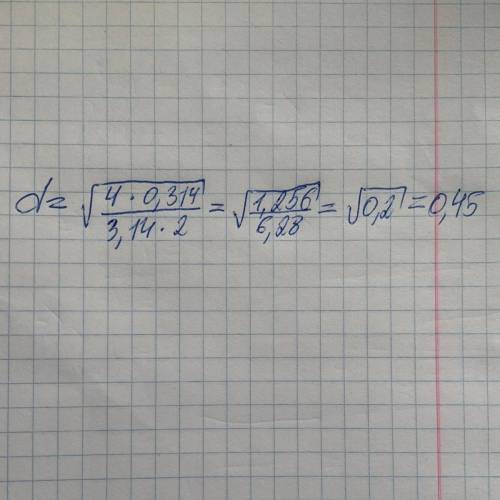 d = √(4 · 0,314 / 3,14 · 2) = √(1,256 / 6,28) = √0,2 = 0,45